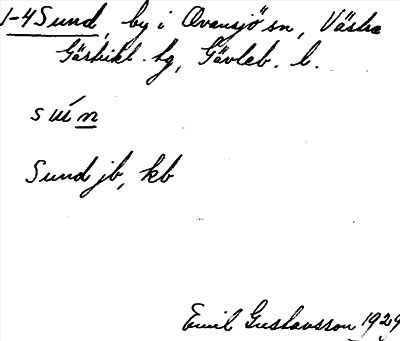 1-4 Sund, by i Ovansjö sn, Västra
Gästrikl. hg, Gävleb. l.
sún
Sund jb, kb
Emil Gustavsson 1929